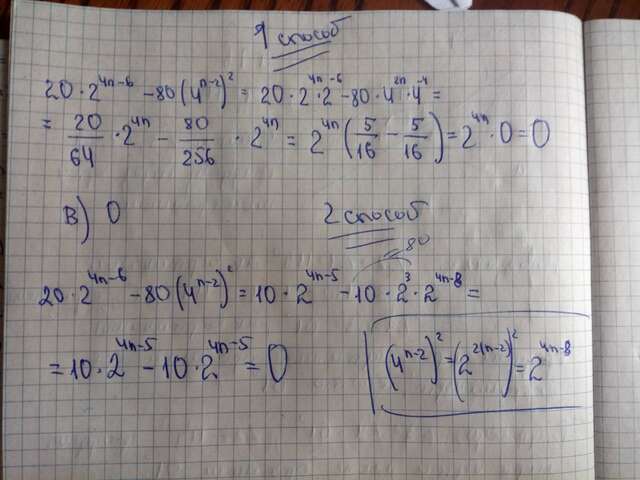 1 способ
20 · 2^{4n-6} - 80(4^{n-2})^2 = 20 · 2^{4n} · 2^{-6} - 80 · 4^{2n} · 4^{-4} =
= 20/64 · 2^{4n} - 80/256 · 2^{4n} = 2^{4n}(5/16 - 5/16) = 2^{4n} · 0 = 0
В) 0
2 способ
= 80
20 · 2^{4n-6} - 80(4^{n-2})^2 = 10 · 2^{4n-5} - 10 · 2^3 · 2^{4n-8} =
= 10 · 2^{4n-5} - 10 · 2^{4n-5} = 0
(4^{n-2})^2 = (2^{2(n-2)})^2 = 2^{4n-8}